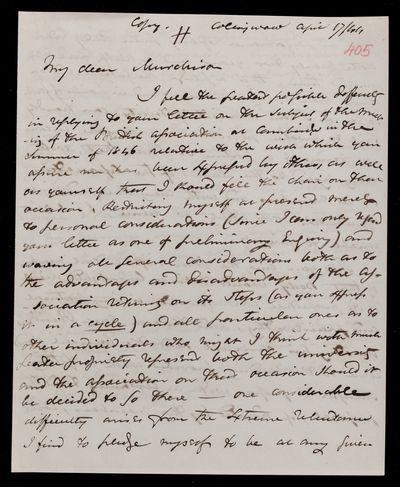 Copy. Collingwood April 17/44
405
My dear Murchison
I feel the greatest possible difficulty
in replying to your letter on the subject of the meet-
ing of the British Association at Cambridge in the
Summer of 1846 relative to the wish which you
has been expressed by others, as well
as yourself that I should fill the chair on that
occasion. Restricting myself at present merely
to personal considerations (since I can only regard
your letter as one of preliminary Enquiry) and
waving all general considerations both as to
the advantages and disadvantages of the As-
sociation returning on its steps (as you express
it in a cycle) and all particular ones as to
other individuals who might I think with much
greater propriety represent both the university
and the association on that occasion should it
be decided to go there — one considerable
difficulty arises from the extreme reluctance
I find to pledge myself to be at any given